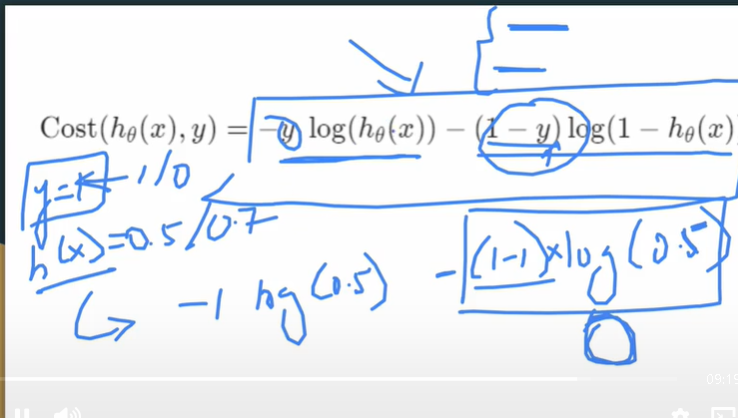 Cost(hθ(x), y) = −y log(hθ(x)) − (1 − y) log(1 − hθ(x)
y=1 1/0
h(x)=0.5/0.7
-1 log(0.5) - (1-1)×log(0.5)
0
09:15